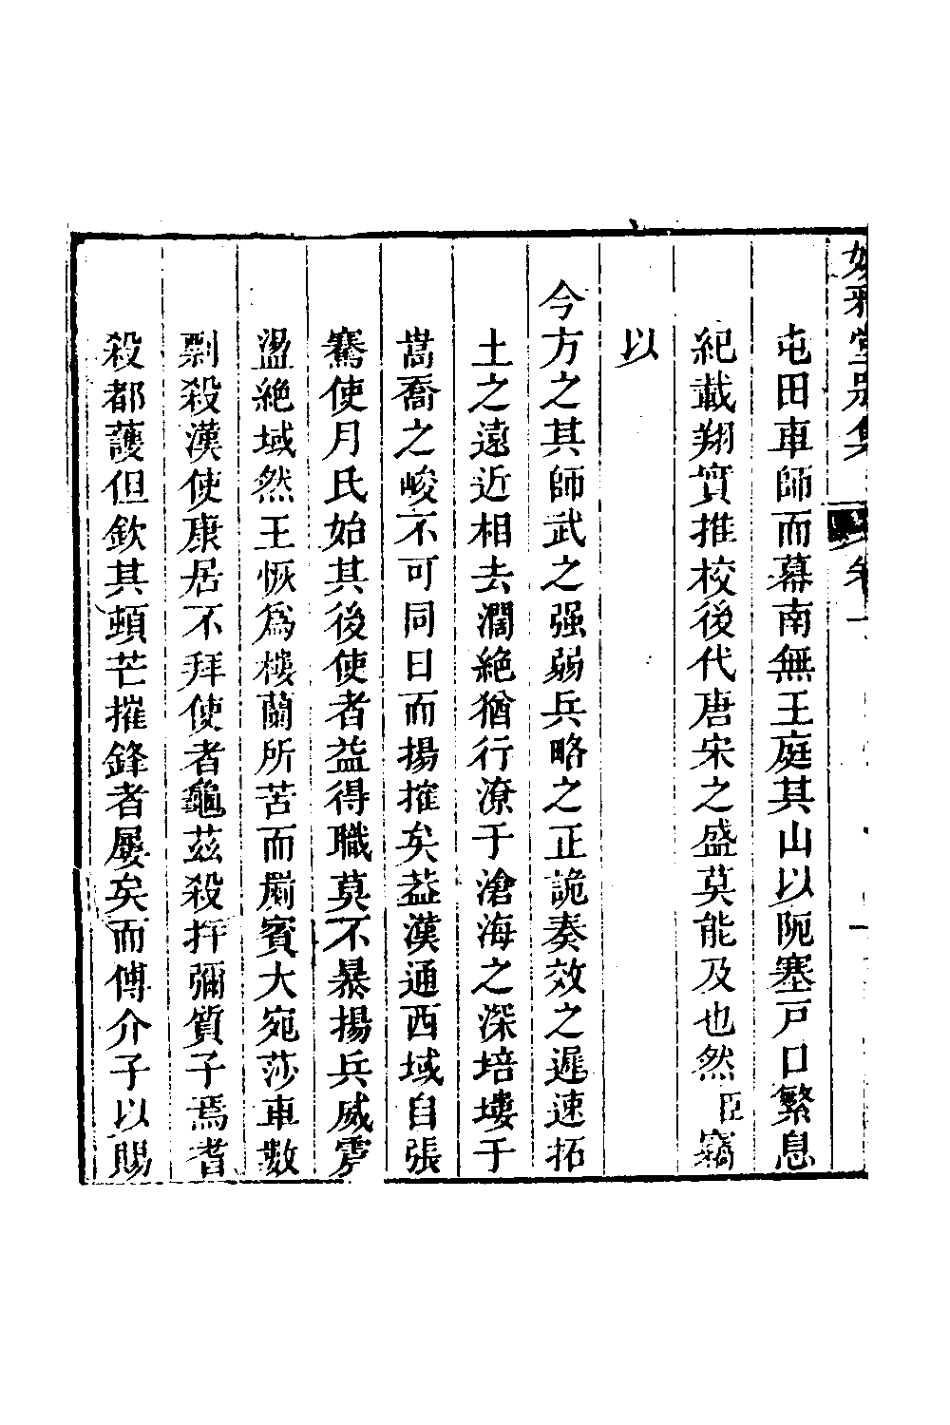 屯田車師而幕南無王庭其山以阨塞戸口繁息
紀載翔實推校後代唐宋之盛莫能及也然臣竊
以
今方之其師武之强弱兵略之正詭奏效之遲速拓
土之遠近相去濶絶猶行潦于滄海之深培塿于
嵩喬之峻不可同日而揚搉矣葢漢通西域自張
騫使月氏始其後使者益得職莫不暴揚兵威雩
盪絶域然王恢爲樓蘭所苦而罽賓大宛莎車數
剽殺漢使康居不拜使者龜茲殺扜彌質子焉耆
殺都䕶但欽其頓芒摧鋒者屢矣而傅介子以賜